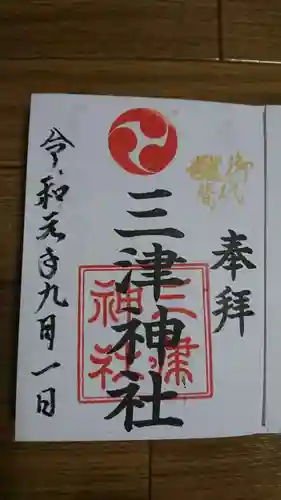 奉拝
御代替
三津神社
三津
神社
令和元年九月一日